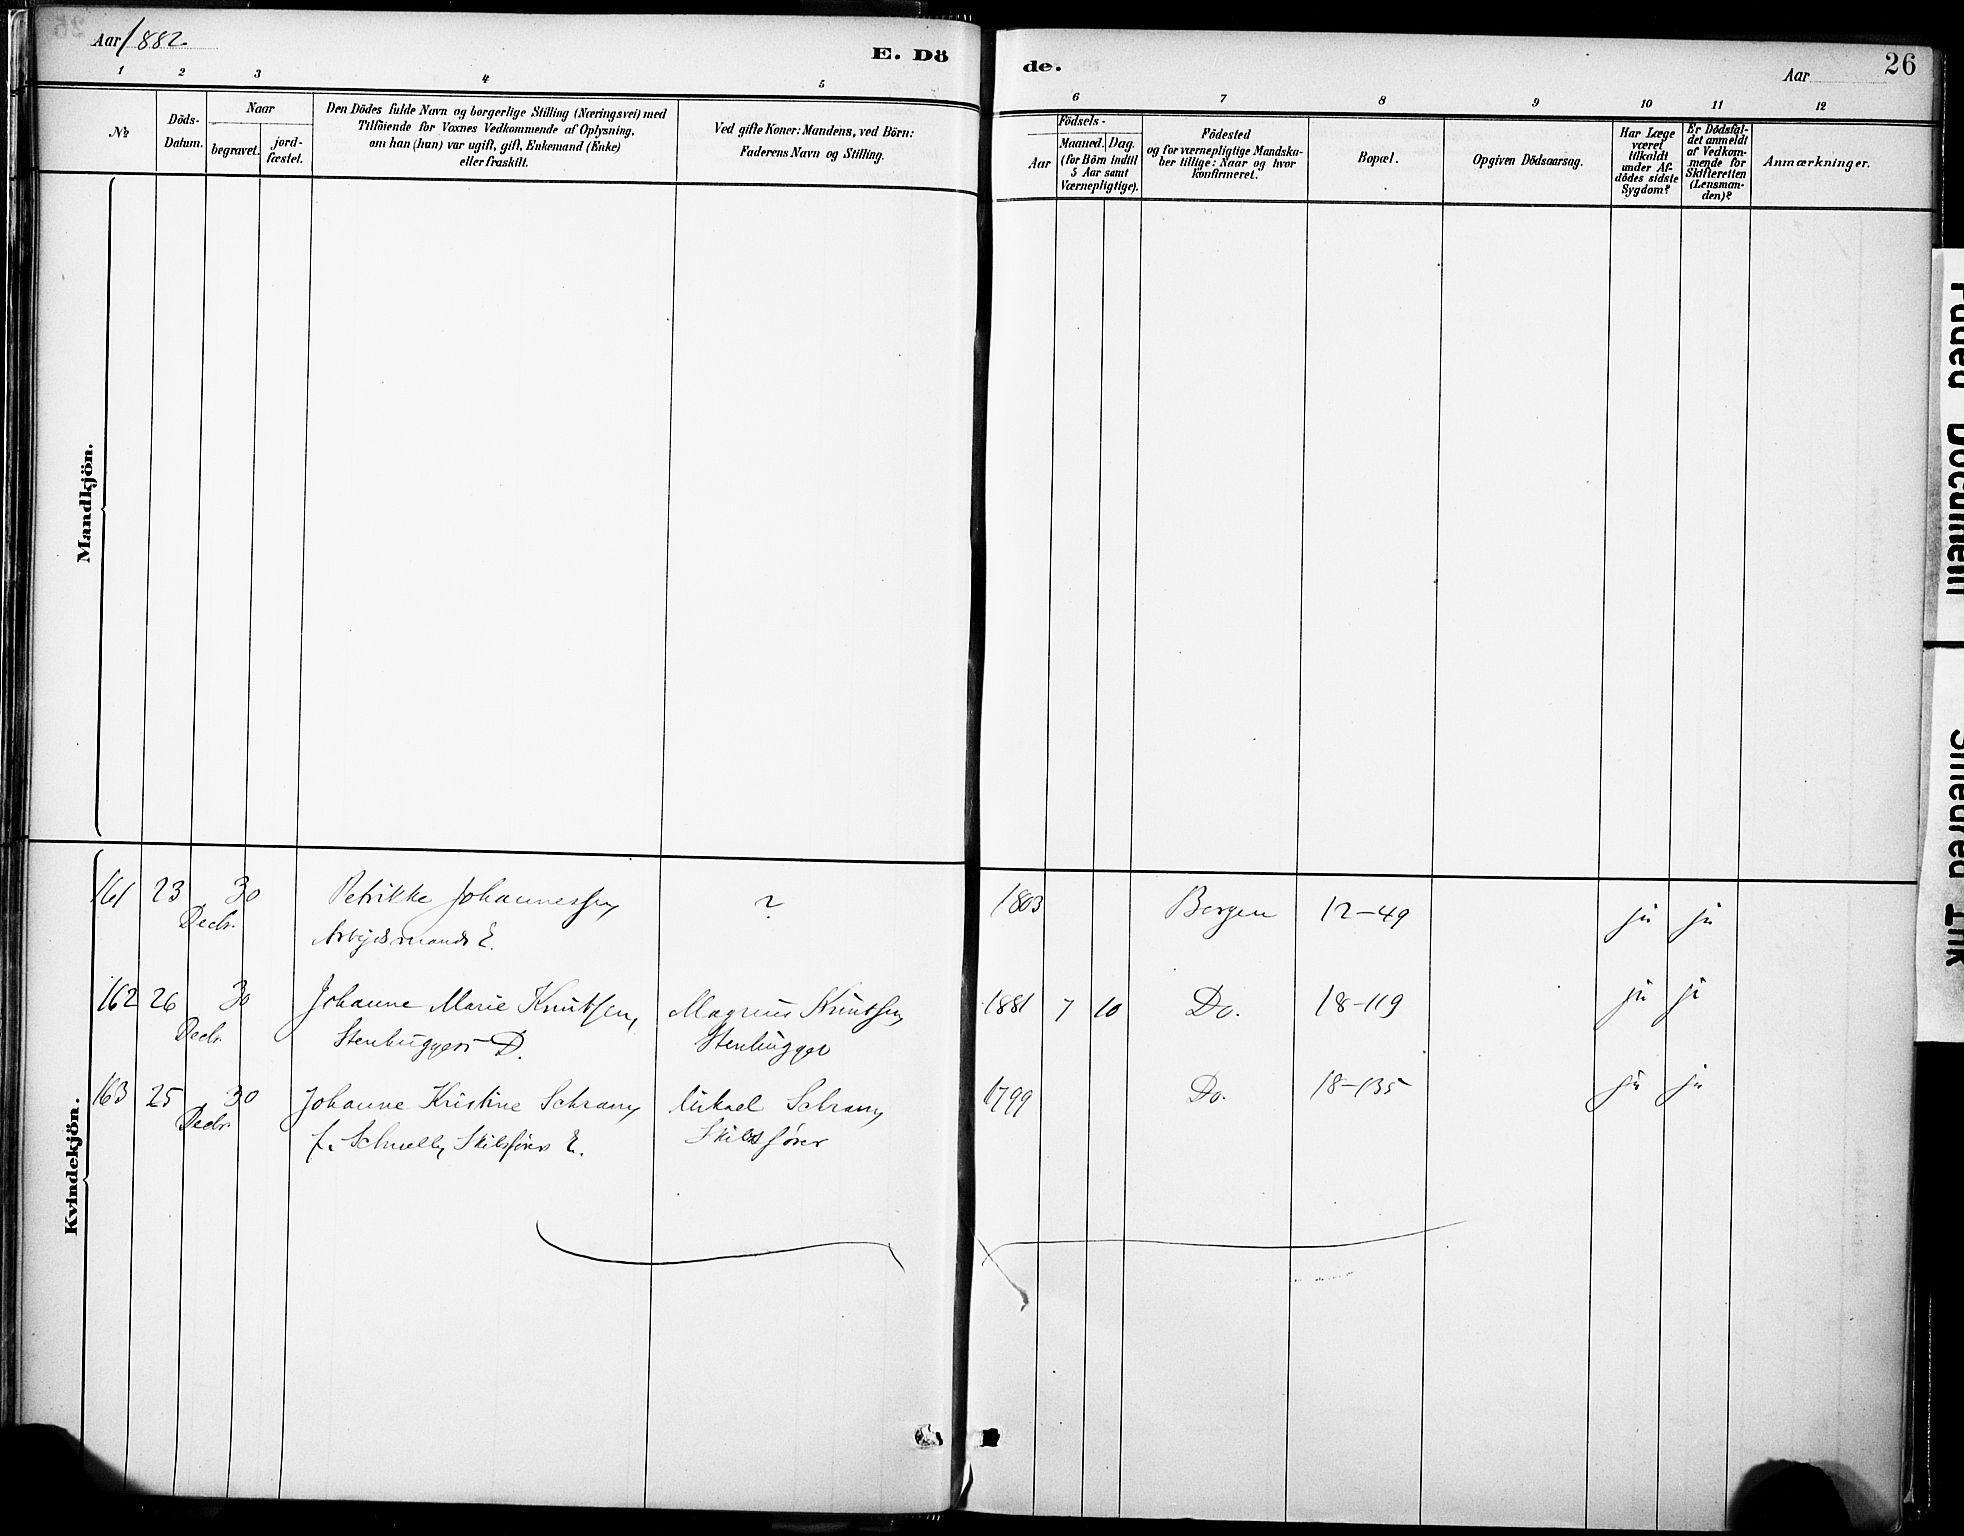 Aar 1882
E. Dö
de.
Aar
26
1 2 3 4 5
6 7 8 9 10 11 12
№
Döds-
Datum.
Naar
begravet.
jord-
fæstet.
Den Dödes fulde Navn og borgerlige Stilling (Næringsvei) med
Tilföiende for Voxnes Vedkommende af Oplysning,
om han (hun) var ugift, gift, Enkemand (Enke)
eller fraskilt.
Ved gifte Koner: Mandens, ved Börn:
Faderens Navn og Stilling.
Födsels-
Aar
Maaned.
Dag.
(for Börn indtil
5 Aar samt
Værnepligtige).
Födested
og for værnepligtige Mandska-
ber tillige: Naar og hvor
konfirmeret.
Bopæl.
Opgiven Dödsaarsag.
Har Læge
været
tilkaldt
under Af-
dödes sidste
Sygdom?
Er Dödsfal-
det anmeldt
af Vedkom-
mende for
Skifteretten
(Lensman-
den)?
Anmærkninger.
Mandkjön.
Kvindekjön.
161 23 30 Petrikke Johannessen ? 1803 Bergen 12-49 ja ja
Decbr. Arbejdsmands E.
162 26 30 Johanne Marie Knutsen, Magnus Knutsen 1881 7 10 Do. 18-119 ja ja
Decbr. Stenhuggers D. Stenhugger
163 25 30 Johanne Kristine Schram, Mikael Schram, 1799 Do. 18-135 ja ja
Decbr. f. Schnell, Skibsförers E. Skibsförer
Faded Document
Smeared Ink